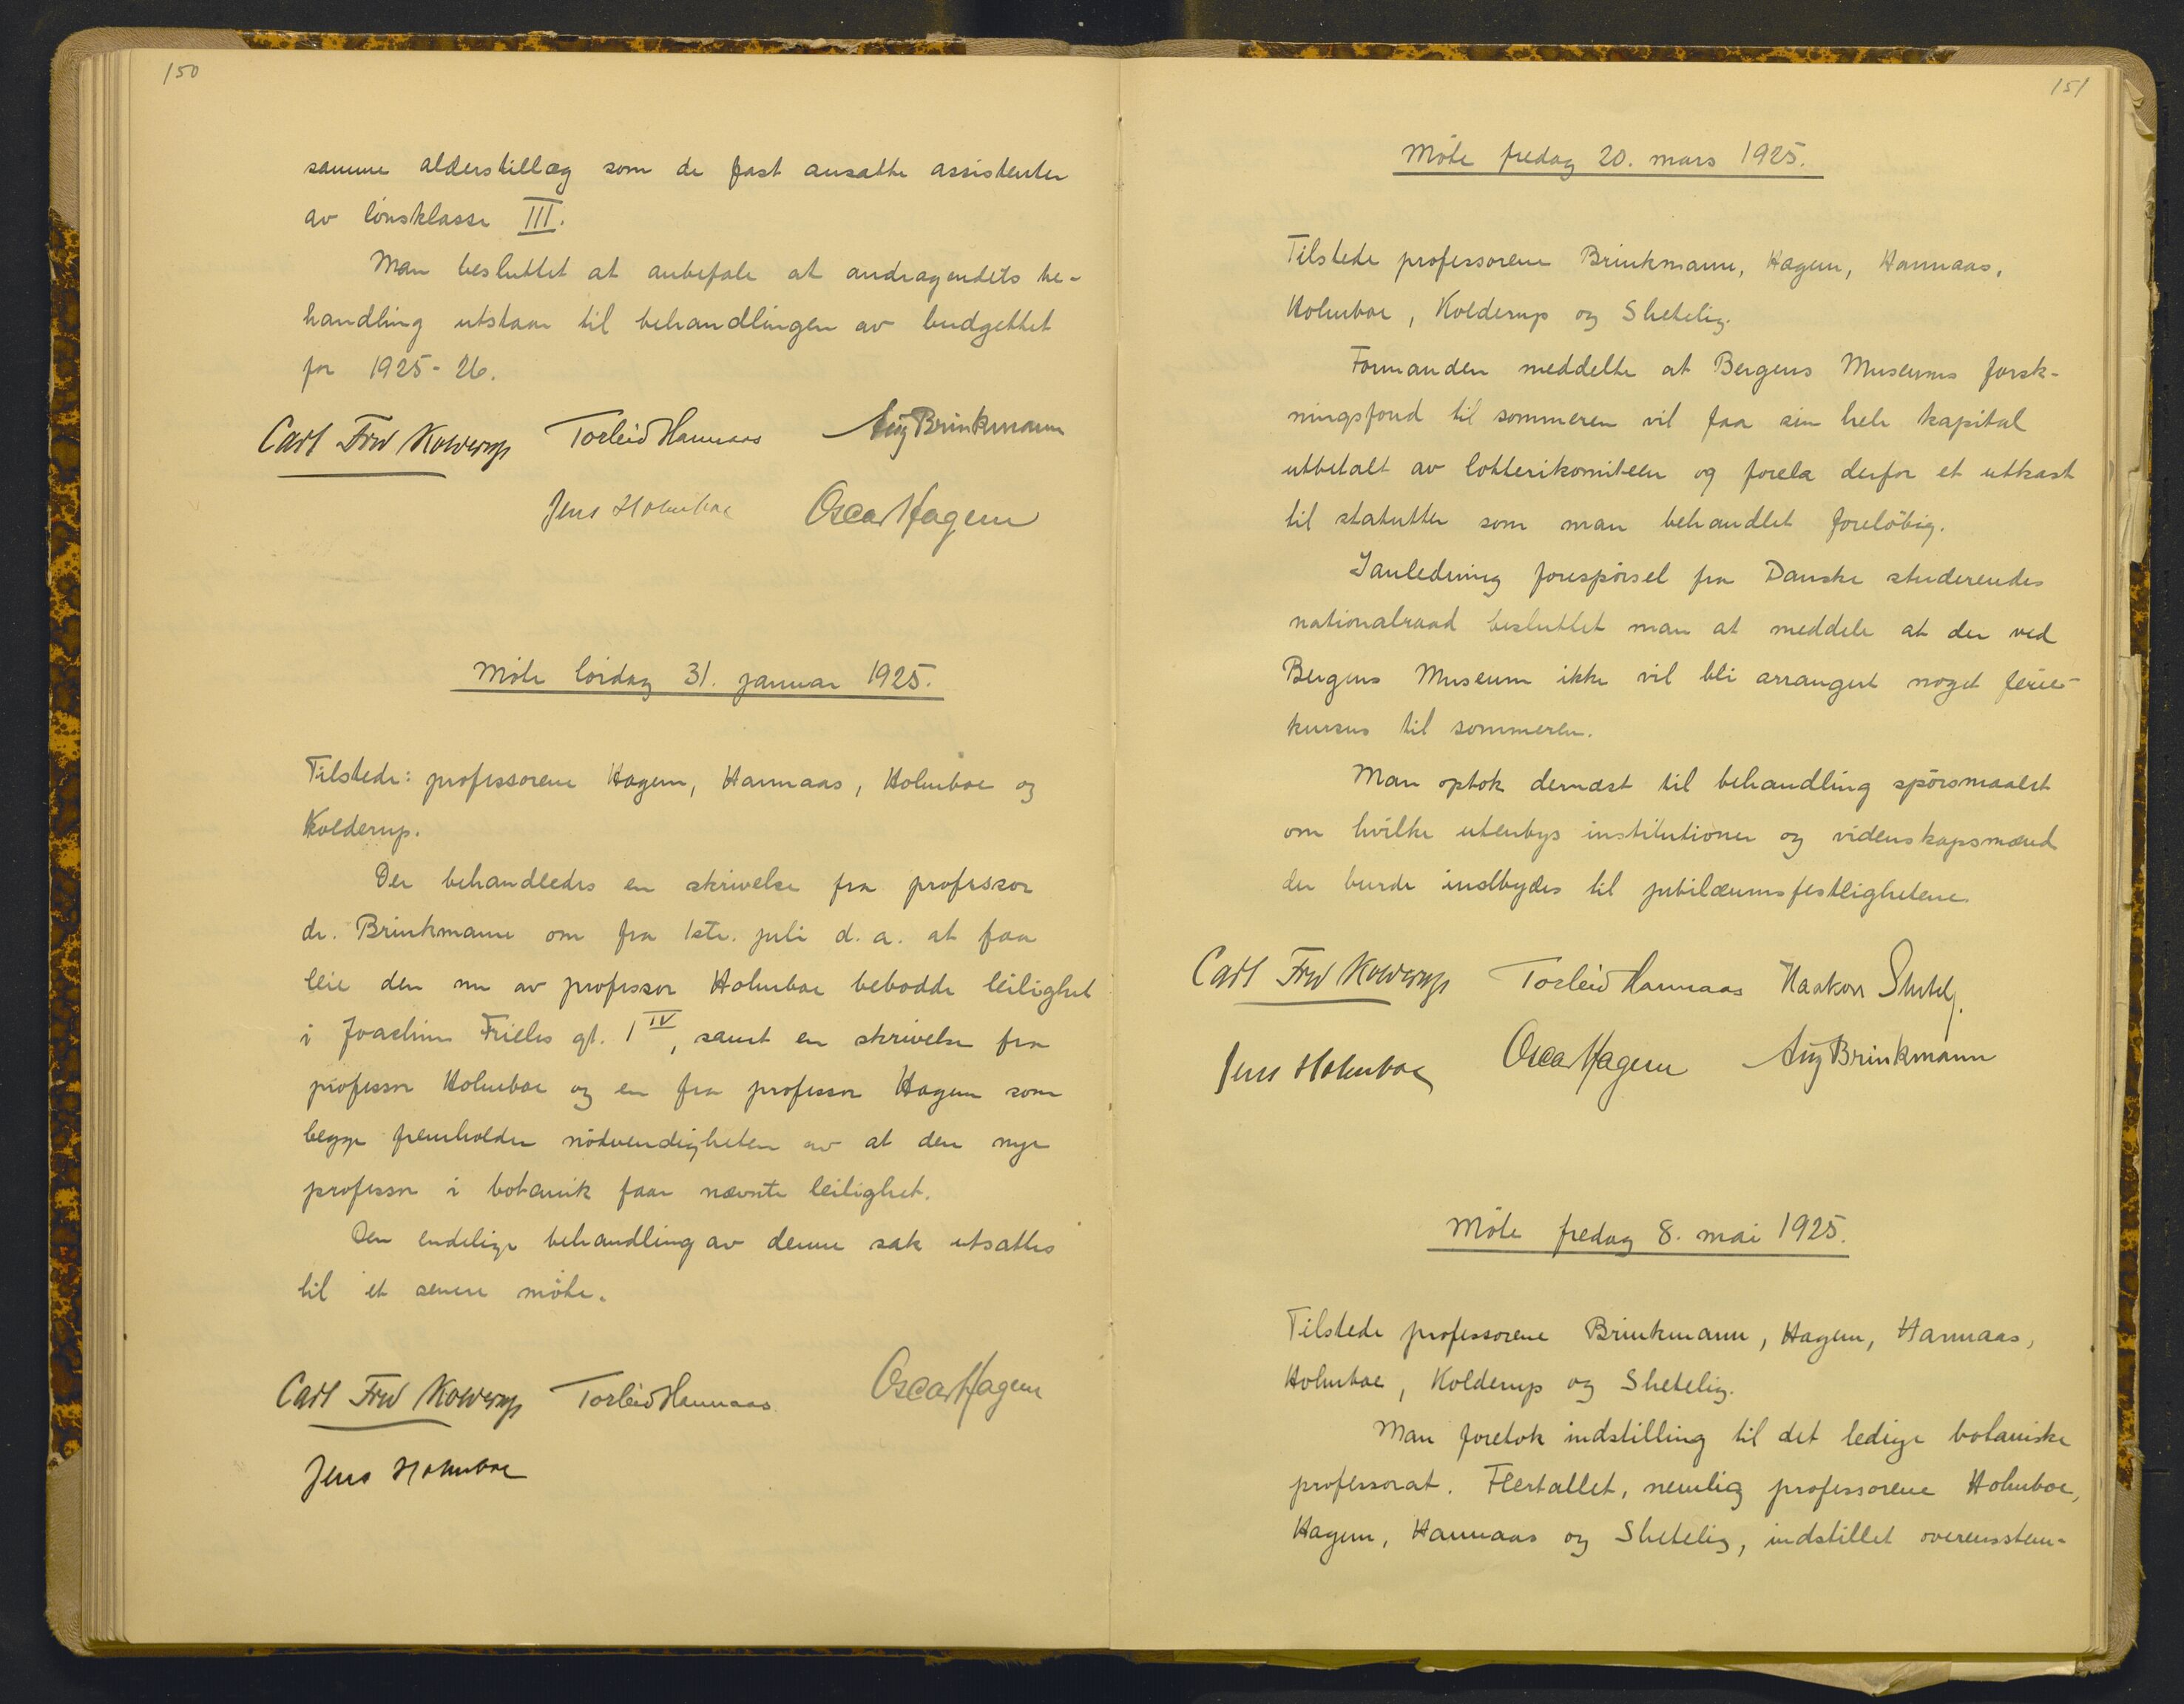 150
samme alderstillæg som de fast ansatte assistenter
av lönsklasse III.
Man besluttet at anbefale at andragendets be-
handling utstaar til behandlingen av budgettet
for 1925-26.
Carl Fred Kolderup Torleiv Hannaas Aug Brinkmann
Jens Holmboe Oscar Hagem
Möte lördag 31. januar 1925.
Tilstede: professorene Hagem, Hannaas, Holmboe og
Kolderup.
Der behandledes en skrivelse fra professor
dr. Brinkmann om fra 1ste. juli d. a. at faa
leie den nu av professor Holmboe bebodde leilighet
i Joachim Frieles gt. 1 IV, samt en skrivelse fra
professor Holmboe og en fra professor Hagem som
begge fremholder nödvendigheten av at den nye
professor i botanik faar nævnte leilighet.
Den endelige behandling av denne sak utsattes
til et senere möte.
Carl Fred Kolderup Torleiv Hannaas Oscar Hagem
Jens Holmboe
151
Möte fredag 20. mars 1925.
Tilstede professorene Brinkmann, Hagem, Hannaas,
Holmboe, Kolderup og Shetelig.
Formanden meddelte at Bergens Museums forsk-
ningsfond til sommeren vil faa sin hele kapital
utbetalt av lotterikomiteen og forela derfor et utkast
til statutter som man behandlet foreløbig.
I anledning forespörsel fra Danske studerendes
nationalraad besluttet man at meddele at der ved
Bergens Museum ikke vil bli arrangert noget ferie-
kursus til sommeren.
Man optok dernæst til behandling spörsmaalet
om hvilke utenbys institutioner og videnskapsmænd
der burde indbydes til jubilæumsfestlighetene.
Carl Fred Kolderup Torleiv Hannaas Haakon Shetelig.
Jens Holmboe Oscar Hagem Aug Brinkmann
Möte fredag 8. mai 1925.
Tilstede professorene Brinkmann, Hagem, Hannaas,
Holmboe, Kolderup og Shetelig.
Man foretok indstilling til det ledige botaniske
professorat. Flertallet, nemlig professorene Holmboe,
Hagem, Hannaas og Shetelig, indstillet overensstem-